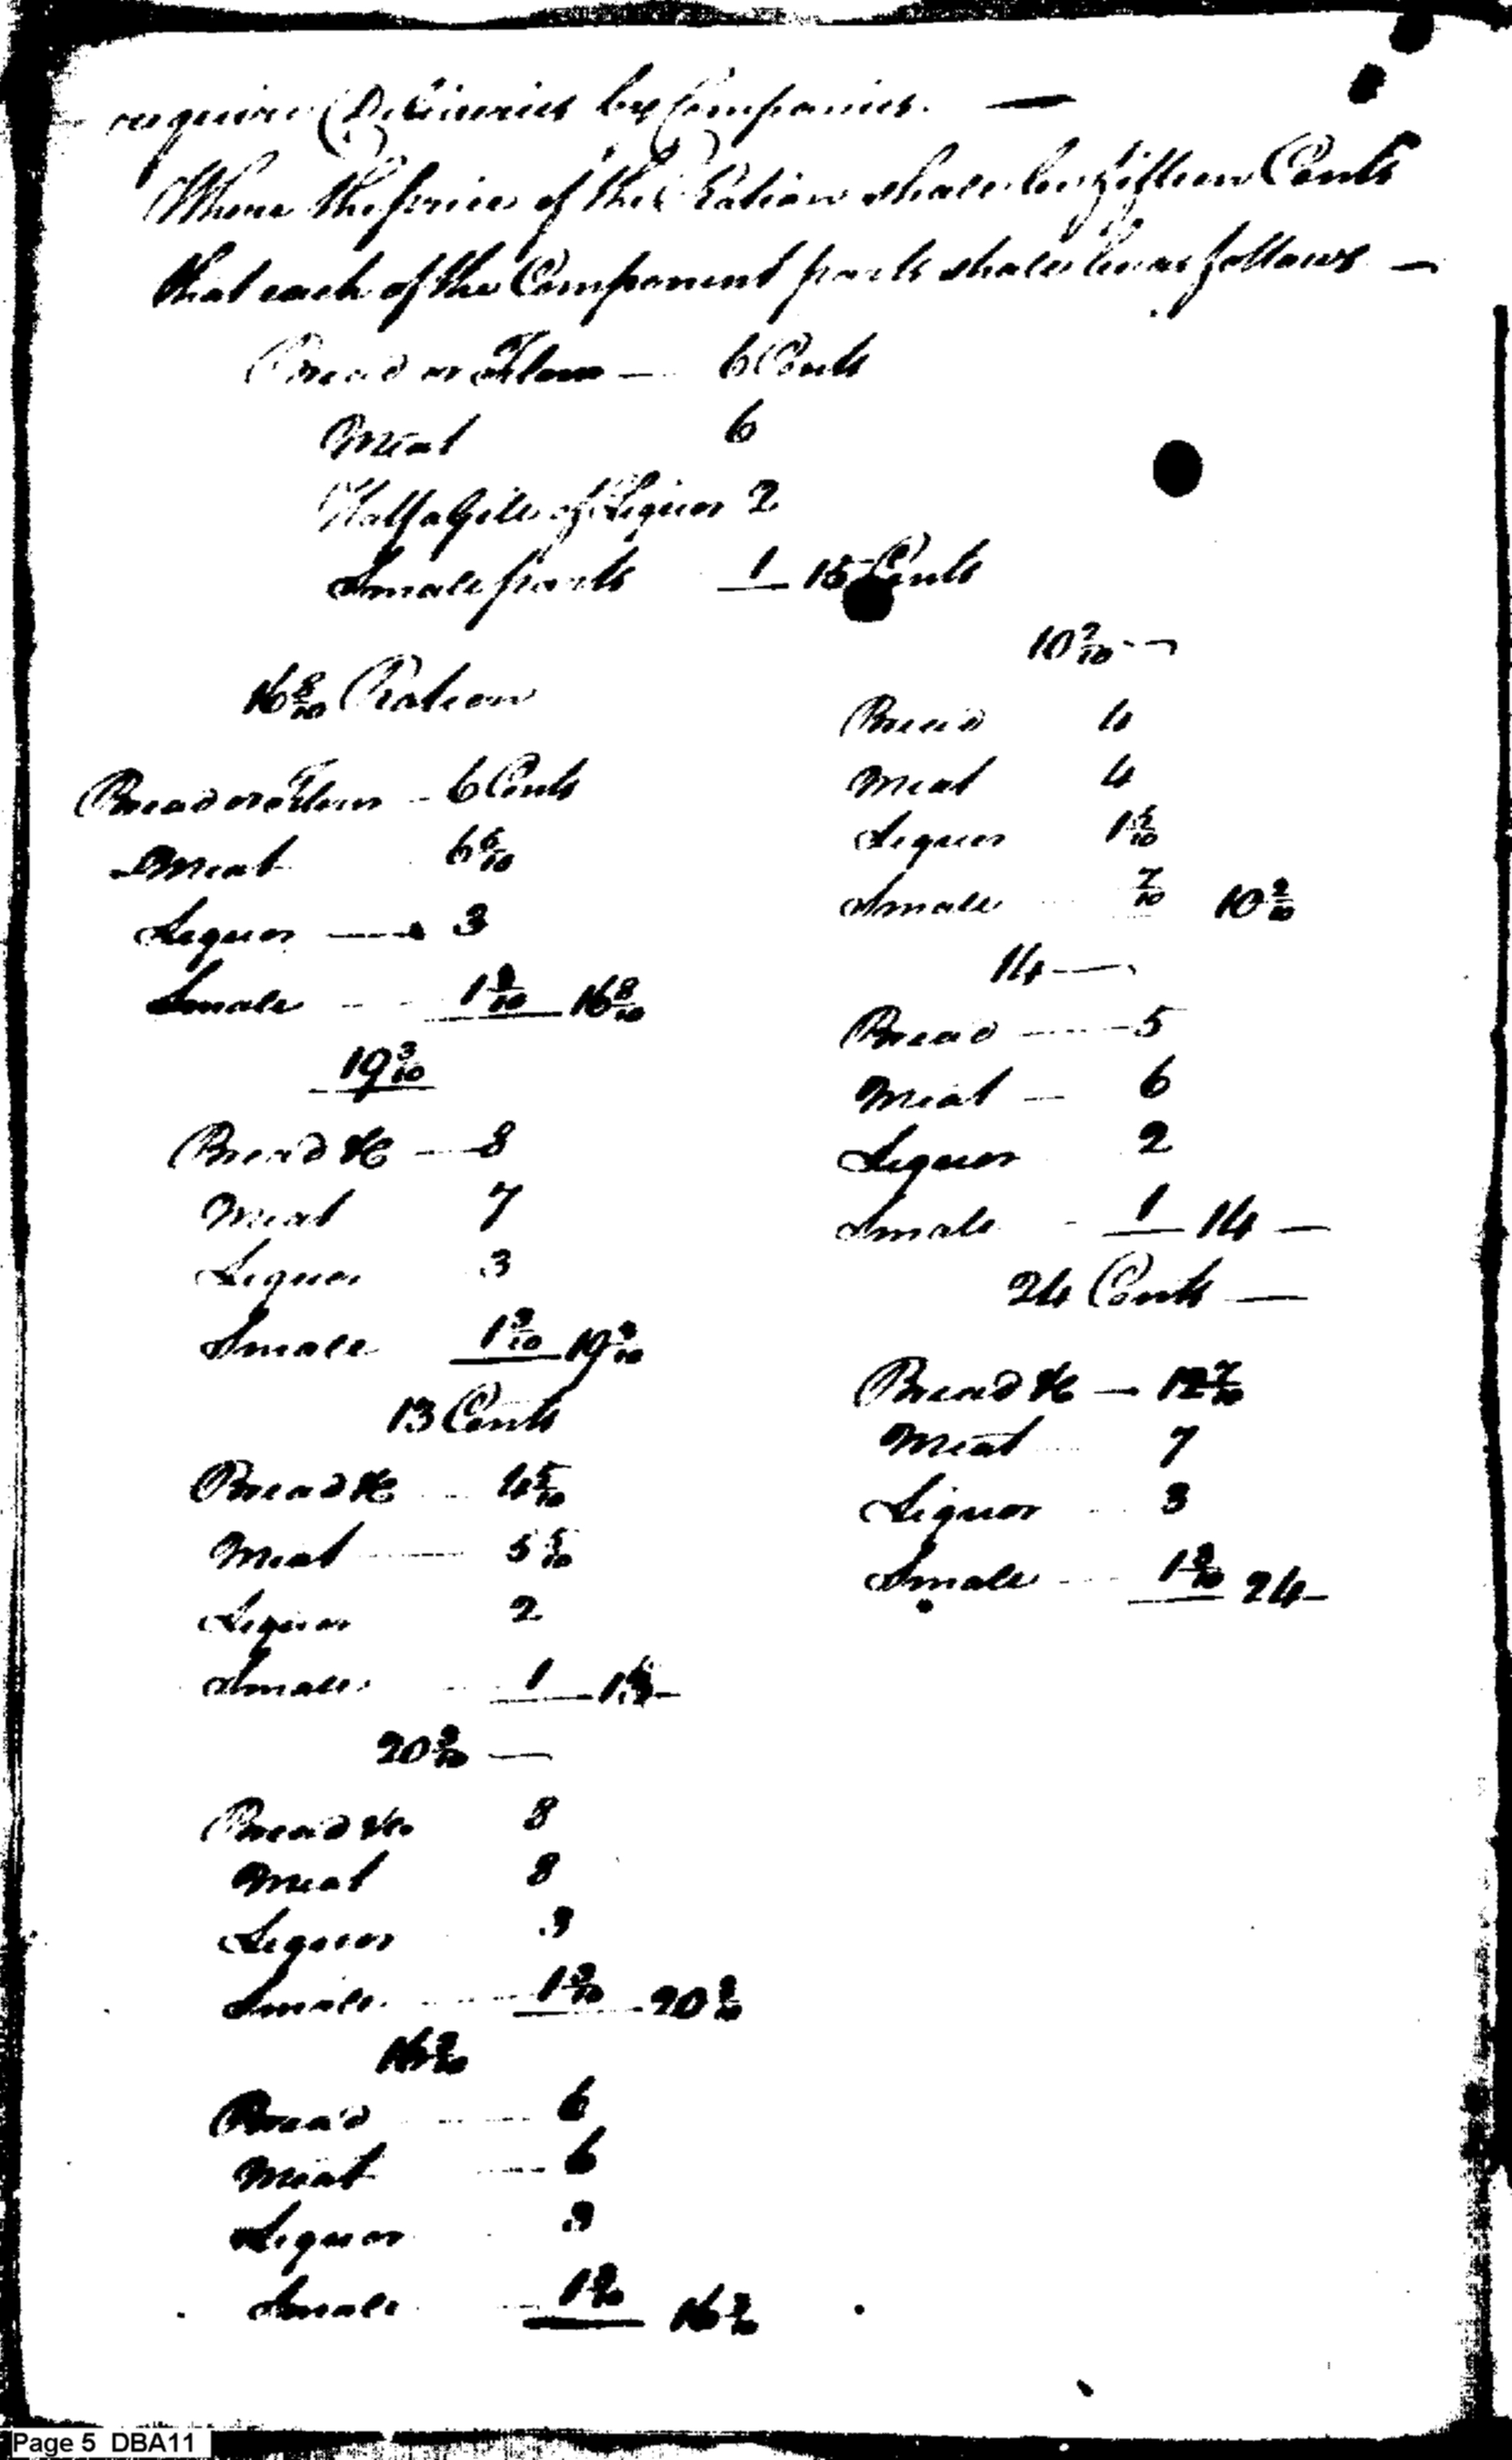 require Deliveries by Companies. —
Where the price of the Ration shall be fifteen Cents
that each of the Component parts shall be as follows —
Bread or Flour — 6 Cents
Meat 6
Half a Gill of Liquor 2
Small parts 1 15 Cents
16 8/10 Ration
Bread or Flour - 6 Cents
Meat 6 5/10
Liquor — 3
Small - - 1 3/10 16 8/10
19 3/10
Bread &c — 8
Meat 7
Liquor 3
Small 1 3/10 19 3/10
13 Cents
Bread &c - 4 5/10
Meat — 5 5/10
Liquor 2
Small 1 13 —
20 3/10 —
Bread &c 8
Meat 8
Liquor 3
Small - 1 3/10 20 3/10
16 3/10
Bread - 6
Meat - 6
Liquor 3
Small - 1 3/10 16 3/10
10 2/10 - -
Bread 4
Meat 4
Liquor 1 5/10
Small 7/10 10 2/10
14 —
Bread — 5
Meat — 6
Liquor 2
Small - 1 14 —
24 Cents —
Bread &c — 12 7/10
Meat 7
Liquor 3
Small - 1 3/10 24 —
Page 5 DBA11